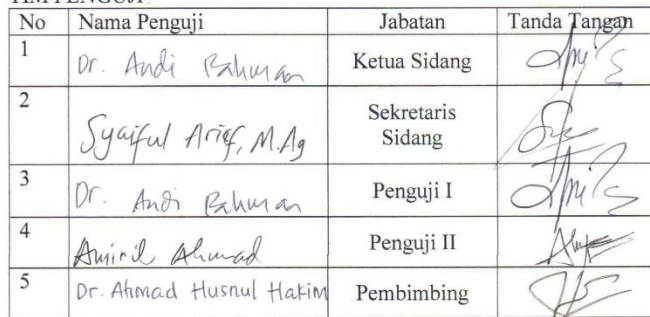 TIM PENGUJI
No Nama Penguji Jabatan Tanda Tangan
1 Dr. Andi Rahman Ketua Sidang
2 Syaiful Arief, M.Ag Sekretaris
Sidang
3 Dr. Andi Rahman Penguji I
4 Amiril Ahmad Penguji II
5 Dr. Ahmad Husnul Hakim Pembimbing